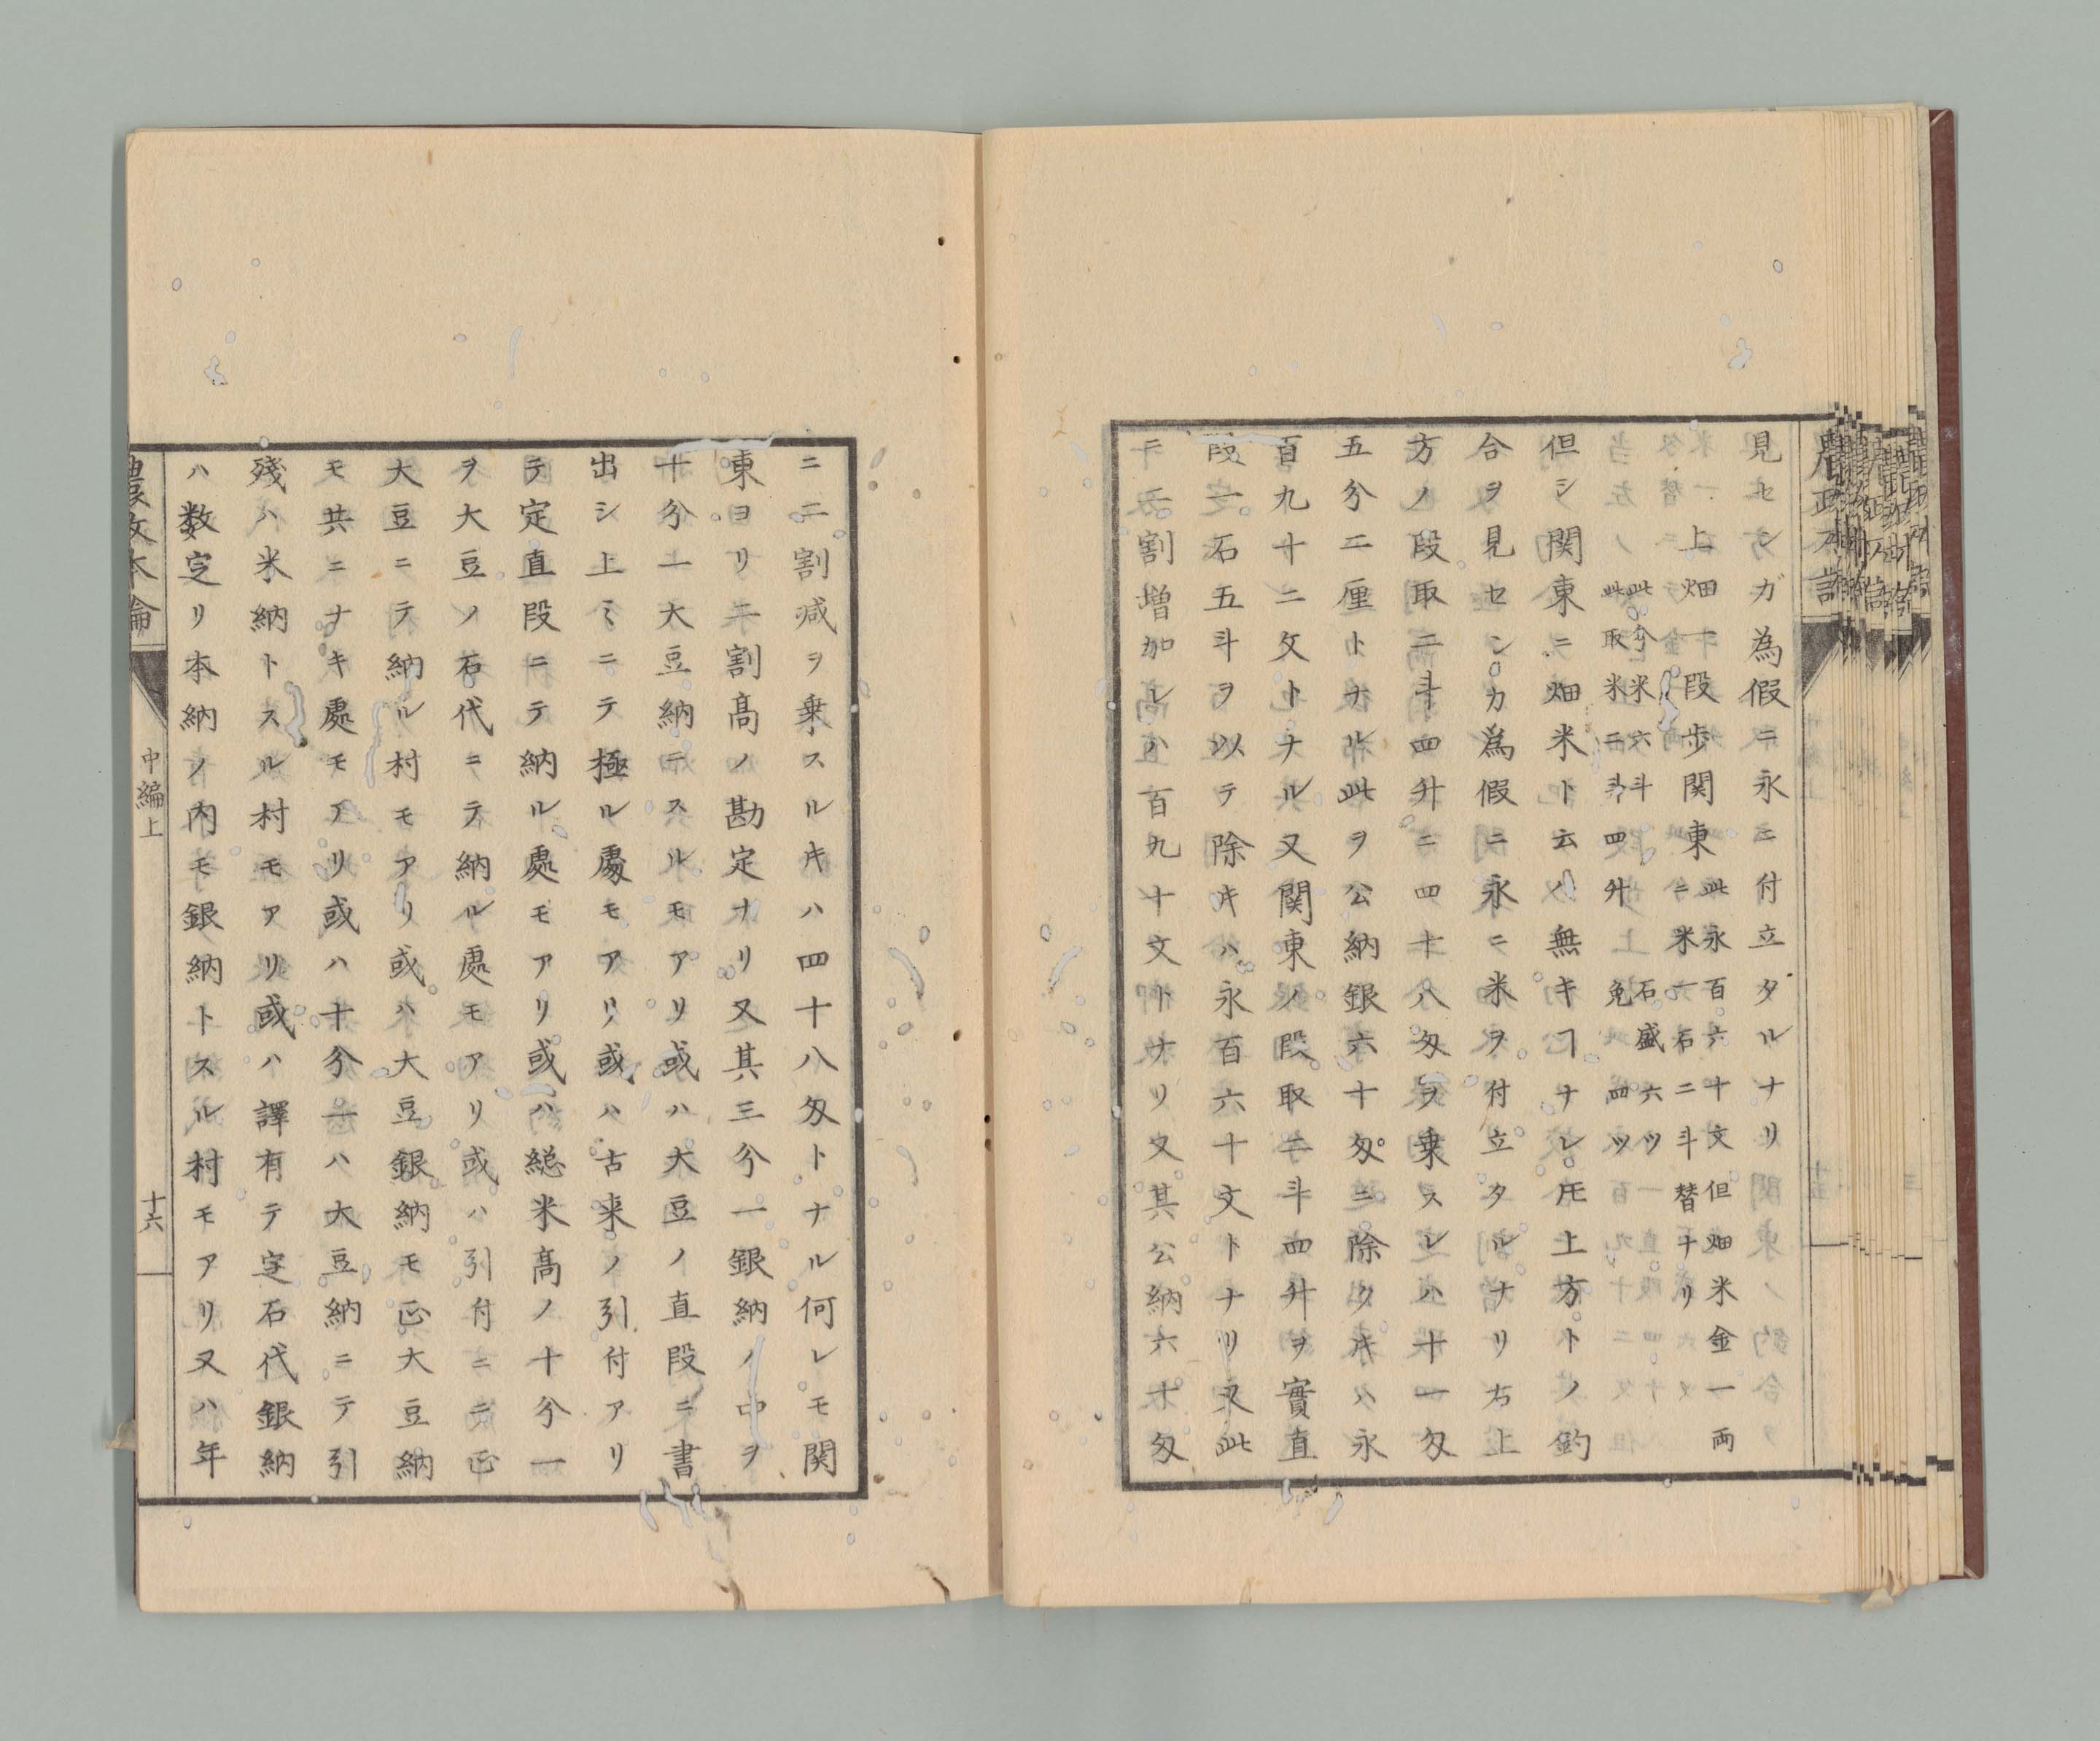 見センガ為假ニ永ニ付立タルナリ
上畑一段歩関東
此永百六十文但畑米金一両
ニ米一石二斗替ナリ
此分米六斗 石盛六ツ
此取米二斗四升 免四ツ
但シ関東ニ畑米ト云ハ無キヿナレ𪜈上方トノ釣
合ヲ見センカ為假ニ永ニ米ヲ付立タルナリ右上
方ノ段取二斗四升ニ四十八匁ヲ乗スレハ十一匁
五分二厘トナル此ヲ公納銀六十匁ニ除クキハ永
百九十二文トナル又関東ノ段取二斗四升ヲ實直
段一石五斗ヲ以テ除キハ永百六十文トナリ又此
ニ二割増加レハ百九十文トナリ又其公納六十匁
ニ二割減ヲ乗スルキハ四十八匁トナル何レモ関
東ヨリ二割高ノ勘定ナリ又其三分一銀納ノ中ヲ
十分一大豆納ニスルモアリ或ハ大豆ノ直段ニ書
出シ上ミニテ極ル處モアリ或ハ古来ノ引付アリ
テ定直段ニテ納ル處モアリ或ハ総米高ノ十分一
ヲ大豆ノ石代ニテ納ル處モアリ或ハ引付ニ正
大豆ニテ納ル村モアリ或ハ大豆銀納モ正大豆納
モ共ニナキ處モアリ或ハ十分一ハ大豆納ニテ引
殘ハ米納トスル村モアリ或ハ譯有テ定石代銀納
ハ数定リ本納ノ内モ銀納トスル村モアリ又ハ年
農政本論
中編上
十六